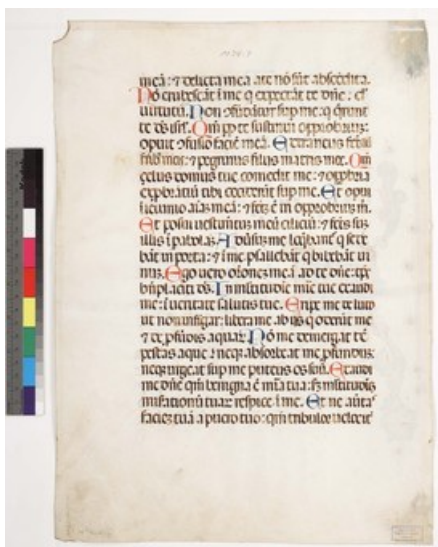 meā: ⁊ delicta mea a te nō sūt abscōdita.
Nō erubescāt ī me q̄ expectāt te dn̄e: d̄s
uirtutū. Non ↄfūdātur sup me: q̄ q̄runt
te d̄s isrl̄. Qm̄ ꝓpt te sustinui opprobriū:
opuit ↄfusio faciē meā. Extraneus
frībus meis: ⁊ pegrinus filiis matris mee. Qm̄
çelus domus tue comedit me: ⁊ opprobria
exprobrātiū tibi ceciderūt sup me. Et opui
ī ieiunio aīaȝ meā: ⁊ fc̄ȝ ē in opprobriuȝ m̄.
Et posui uestimētuȝ meū ciliciū: ⁊ fc̄s suȝ
illis ī parabolaȝ. Aduersuȝ me loq̄bant̄ q̄ sede
bāt in porta: ⁊ ī me psallebāt q̄ bibebāt ui
nuȝ. Ego uero or̄onez meā ad te dn̄e: tp̄s
bn̄placiti d̄s. In multitudīe mīe tue exaudi
me: ī ueritate salutis tue. Eripe me de luto
ut non infigar: libera me ab hiȝ q̄ oderūt me
⁊ de ꝓfūdis aquaꝝ. Nō me demergat tē
pestas aque: ⁊ neqȝ absorbeat me ꝓfundum:
neqȝ urgeat sup me puteus os suū. Exaudi
me dn̄e qm̄ benigna ē mīa tua: ẜm multitudinē
miserationū tuaꝝ respice ī me. Et ne auertas
facieȝ tuā a puero tuo: qm̄ tribulor uelociter